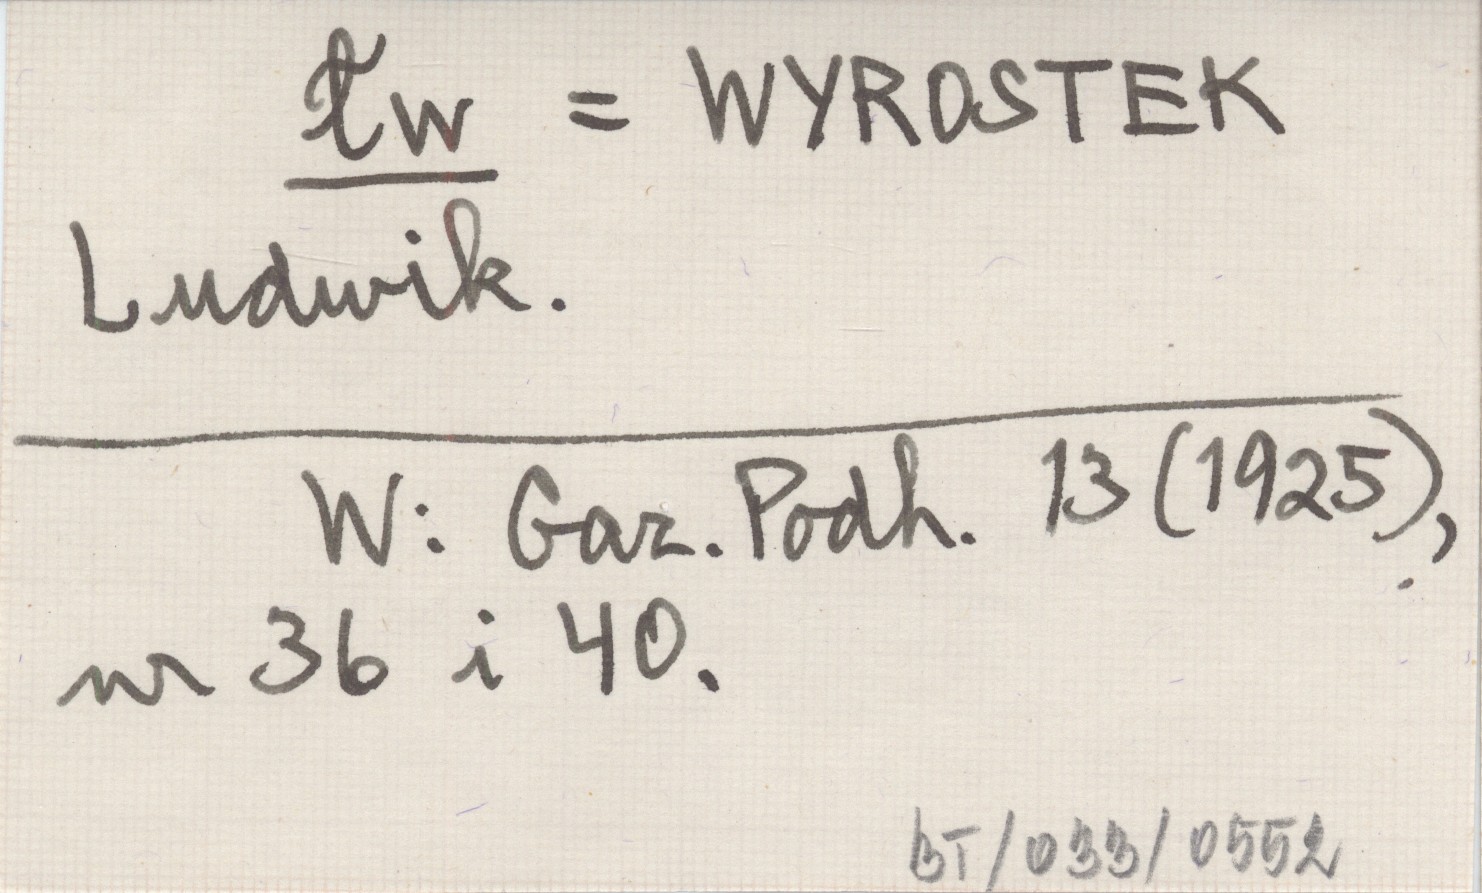 łw = WYROSTEK
Ludwik.
W: Gaz. Podh. 13 (1925),
nr 36 i 40.
BT/033/0552